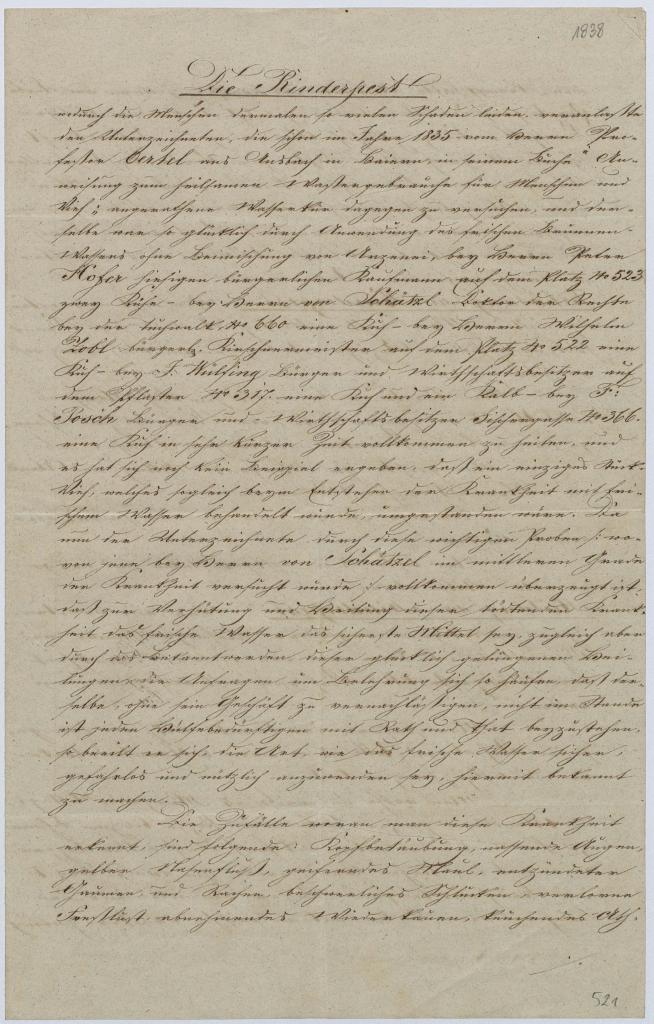 1838
Die Rinderpest
wodurch die Menschen dermalen so vielen Schaden leiden, veranlaßte
den Unterzeichneten, die schon im Jahre 1835 vom Herrn Pro-
fessor Oertel aus Ansbach in Baiern, in seinem Buche "An-
weisung zum heilsamen Wassergebrauche für Menschen und
Vieh" angerathene Wasserkur dagegen zu versuchen, und der-
selbe war so glücklich durch Anwendung des frischen Brunnen-
Wassers ohne Beimischung von Arzenei, bey Herrn Peter
Hofer hiesigen bürgerlichen Kaufmann auf dem Platz No 523
zwey Kühe - bey Herrn von Schätzl Doktor der Rechte
bey der No 660 eine Kuh - bey Herrn Wilhelm
Zobl bürgerl. Kirschnermeister auf dem Platz No 522 eine
Kuh - bey J. Wülfing Bürger und Wirthschaftsbesitzer auf
dem Pflaster No 317. eine Kuh und ein Kalb - bey F:
Posch Bürger und Wirthschaftsbesitzer Fischergasse No 366.
eine Kuh in sehr kurzer Zeit vollkommen zu heilen, und
es hat sich noch kein Beispiel ergeben, daß ein einziges Stück
Vieh, welches sogleich beym Entstehen der Krankheit mit fri-
schem Wasser behandelt wurde, umgestanden wäre. Da
nun der Unterzeichnete durch diese wichtigen Proben /: wo-
von jene bey Herrn von Schätzel im mittleren Grade
der Krankheit versucht wurde :/ vollkommen überzeugt ist,
daß zur Verhütung und Heilung dieser tödtenden Krank-
heit das frische Wasser das sicherste Mittel sey, zugleich aber
durch das Bekanntwerden dieser glücklich gelungenen Hei-
lungen, die Anfragen um Belehrung sich so häufen, daß der-
selbe, ohne sein Geschäft zu vernachlässigen, nicht im Stande
ist jeden Hülfsbedürftigen mit Rath und That beyzustehen,
so beeilt er sich, die Art, wie das frische Wasser sicher,
gefahrlos und nützlich anzuwenden sey, hiermit bekannt
zu machen.
Die Zufälle woran man diese Krankheit
erkennt, sind folgende: Kopfbetäubung, nassende Augen,
gelber Nasenfluß, geiferndes Maul, entzündeter
Gaumen und Rachen, beschwerliches Schlucken, verlorne
Freßlust, abnehmendes Wiederkauen, keuchendes Ath-
521